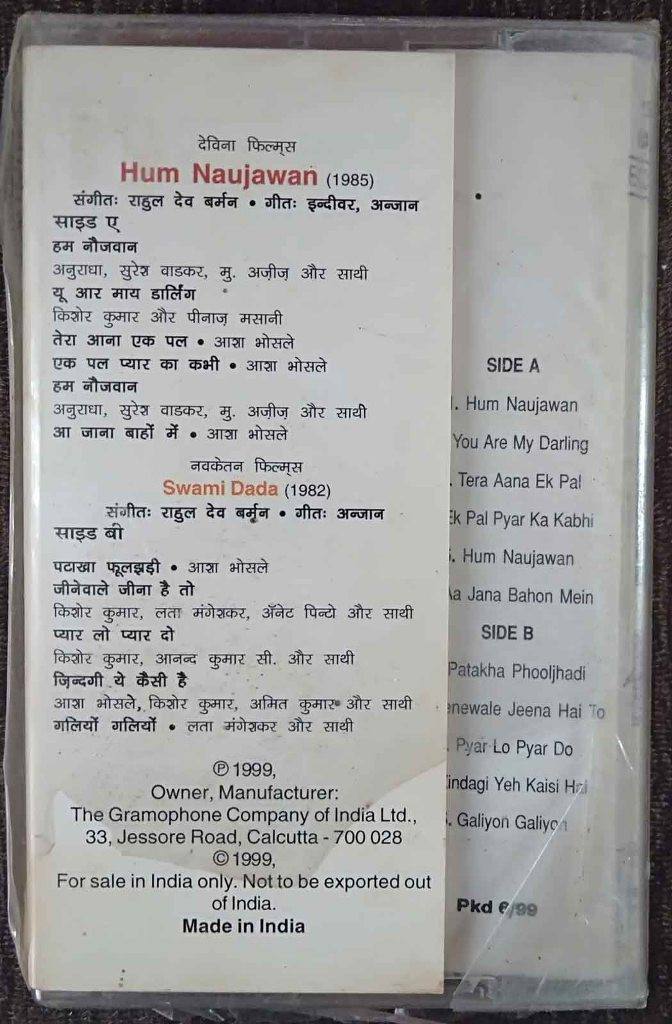 देविना फिल्म्स
Hum Naujawan (1985)
संगीतः राहुल देव बर्मन • गीतः इन्दीवर, अन्जान
साइड ए
हम नौजवान
अनुराधा, सुरेश वाडकर, मु. अज़ीज़ और साथी
यू आर माय डार्लिंग
किशोर कुमार और पीनाज़ मसानी
तेरा आना एक पल • आशा भोसले
एक पल प्यार का कभी • आशा भोसले
हम नौजवान
अनुराधा, सुरेश वाडकर, मु. अज़ीज़ और साथी
आ जाना बाहों में • आशा भोसले
नवकेतन फिल्म्स
Swami Dada (1982)
संगीतः राहुल देव बर्मन • गीतः अन्जान
साइड बी
पटाखा फूलझड़ी • आशा भोसले
जीनेवाले जीना है तो
किशोर कुमार, लता मंगेशकर, ॲनेट पिन्टो और साथी
प्यार लो प्यार दो
किशोर कुमार, आनन्द कुमार सी. और साथी
ज़िन्दगी ये कैसी है
आशा भोसले, किशोर कुमार, अमित कुमार और साथी
गलियों गलियों • लता मंगेशकर और साथी
Ⓟ 1999,
Owner, Manufacturer:
The Gramophone Company of India Ltd.,
33, Jessore Road, Calcutta - 700 028
© 1999,
For sale in India only. Not to be exported out
of India.
Made in India
SIDE A
. Hum Naujawan
You Are My Darling
. Tera Aana Ek Pal
Ek Pal Pyar Ka Kabhi
. Hum Naujawan
Aa Jana Bahon Mein
SIDE B
Patakha Phooljhadi
enewale Jeena Hai To
. Pyar Lo Pyar Do
indagi Yeh Kaisi Hai
. Galiyon Galiyon
Pkd 6/99